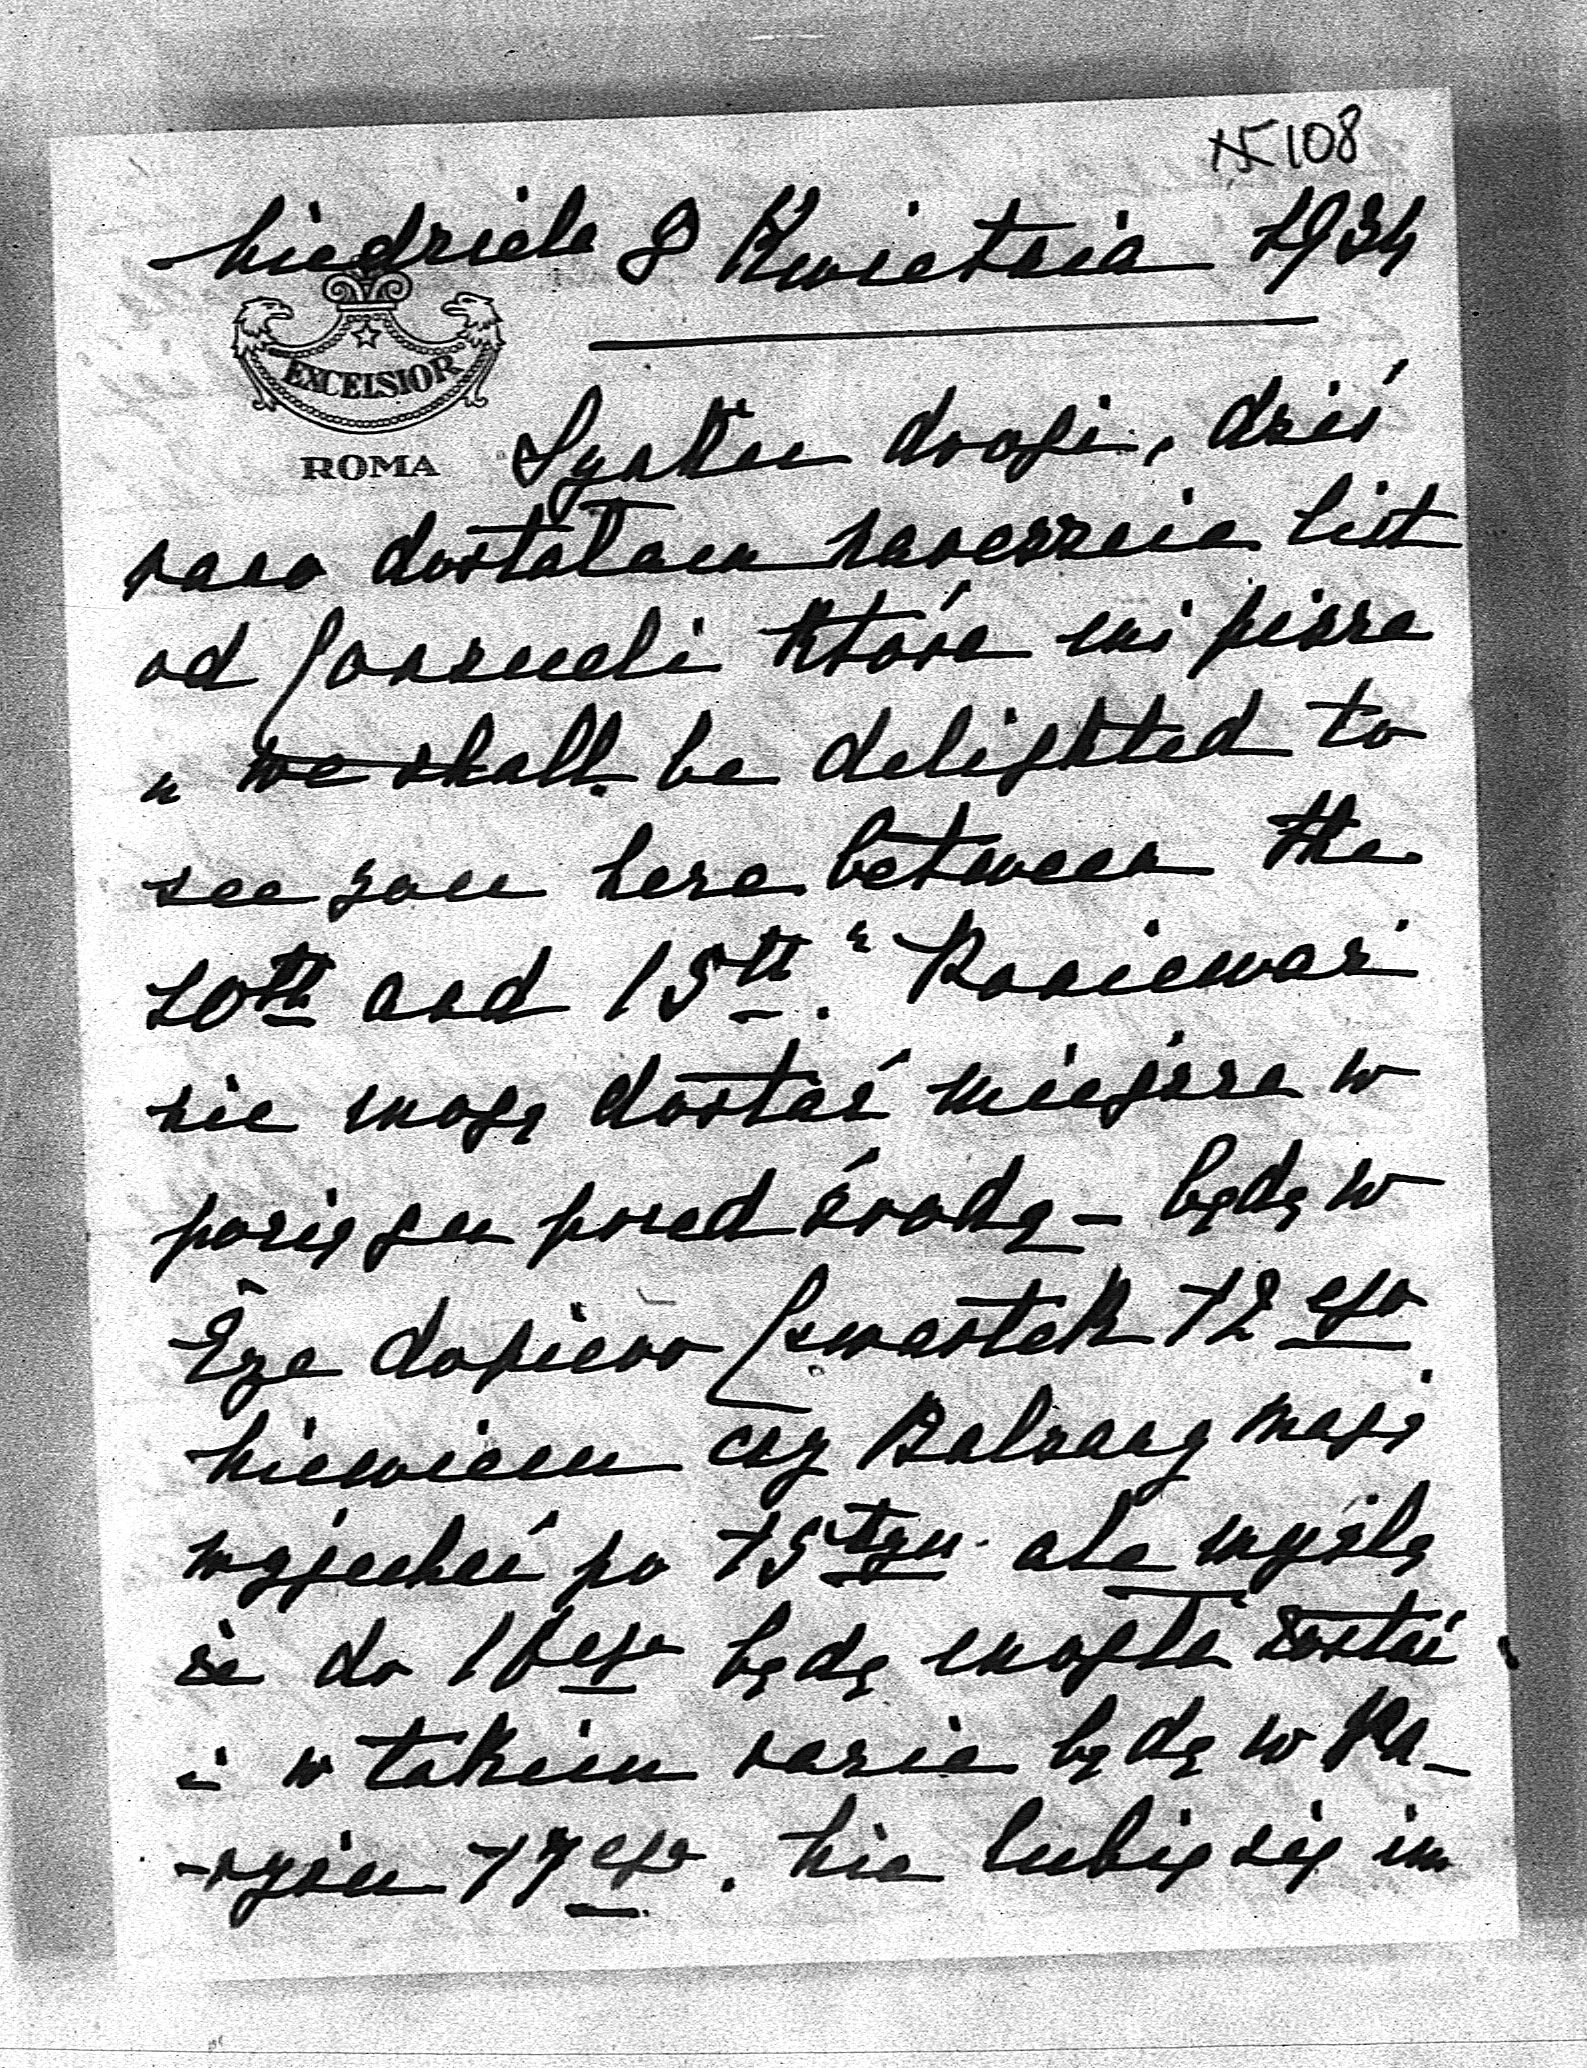 108
Niedziela 8 Kwietnia 1934
EXCELSIOR
ROMA
Synku drogi, dziś
rano dostałam nareszcie list
od Consueli która mi pisze
„ we shall be delighted to
see you here between the
10th and 15th." Ponieważ
nie mogę dostać miejsca w
pociągu przed środą – będę w
Èze dopiero Czwartek 12ego
Niewiem czy Balsany mają
wyjechać po 15tym ale myślę
że do 16ego będę mogła zostać
i w takim razie będę w Pa-
-ryżu 17ego. Nie lubię się im